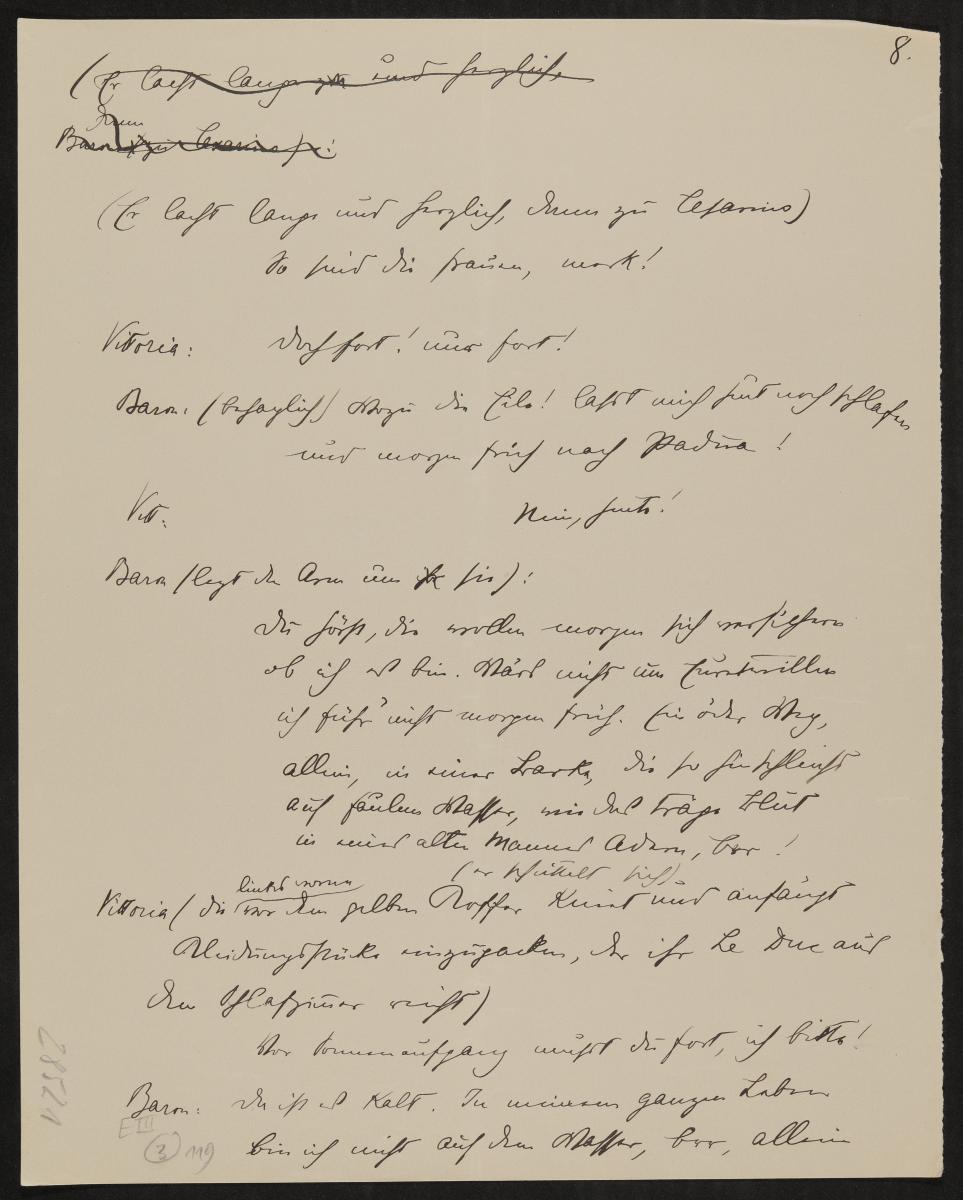 8.
(Er lacht lange und herzlich.
dann
Baron (zu Cesarino):
(Er lacht lange und herzlich, dann zu Cesarino)
So sind die frauen, merk!
Vittoria: Doch fort! nur fort!
Baron: (behaglich) Wozu die Eile! lasst mich heut noch schlafen
und morgen früh nach Padua!
Vitt: Nein, heute!
Baron (legt den Arm um sie):
Du hörst, die wollen morgen sich versichern
ob ich es bin. Wärs nicht um Euretwillen
ich führ' nicht morgen früh. Ein öder Weg,
allein, in einer Barke, die so hinschleicht
auf faulem Wasser, wie das träge Blut
in eines alten Mannes Adern, brr!
(er schüttelt sich)
links vorne
Vittoria (die vor dem gelben Koffer kniet und anfängt
Kleidungsstücke einzupacken, der ihr Le Duc aus
dem Schlafzimmer reicht)
Vor Sonnenaufgang musst du fort, ich bitte!
Baron: Da ist es kalt. In meinem ganzen Leben
bin ich nicht auf dem Wasser, brr, allein
E III
3 119
28521